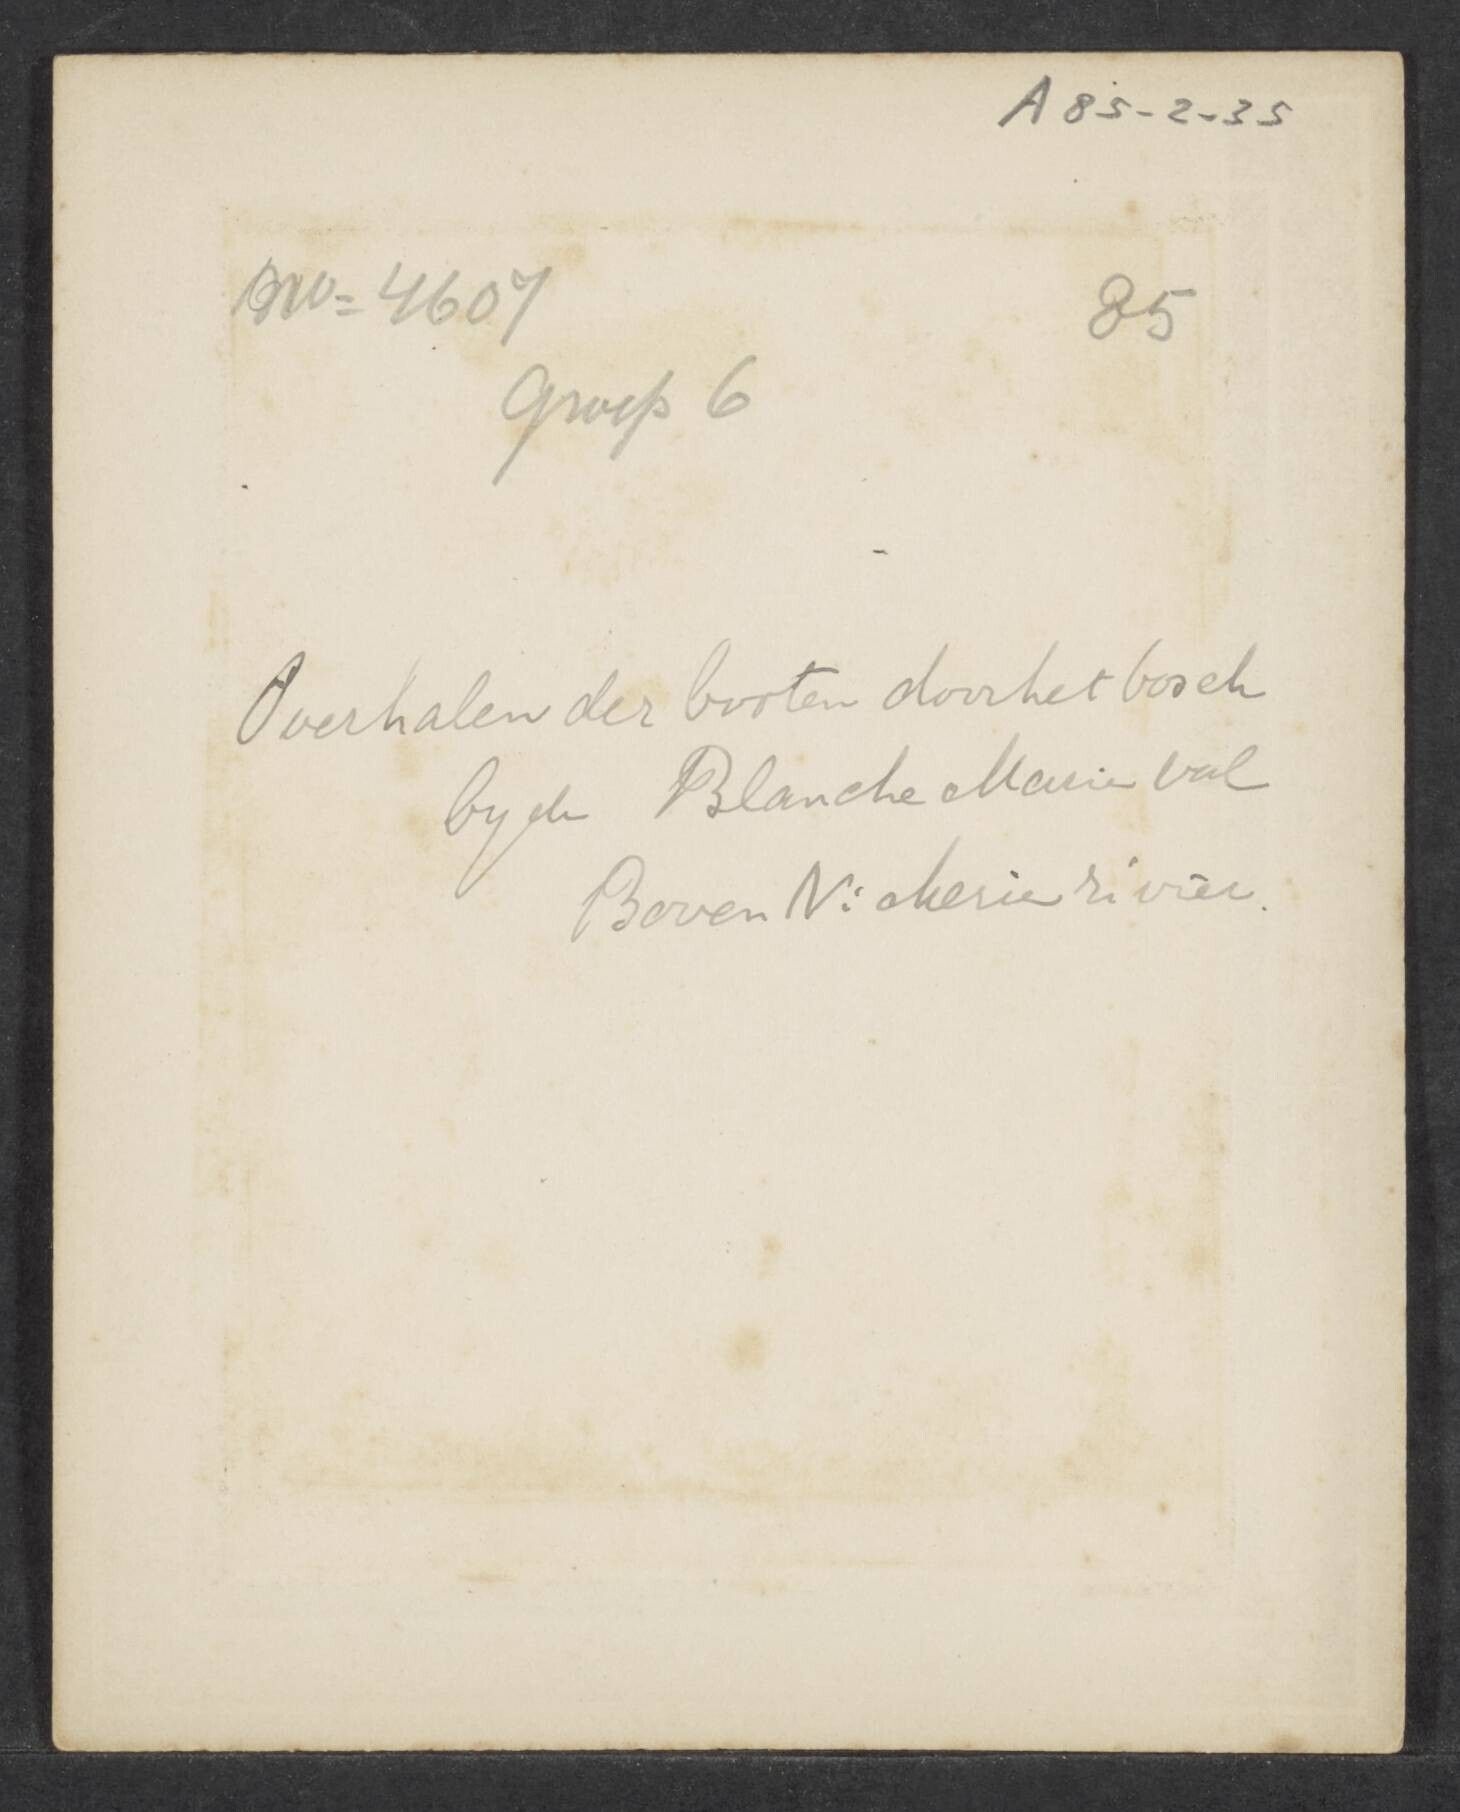 A 85-2-35
Inv= 4607 85
Groep 6
Overhalen der booten door het bosch
by de Blanche Marie val
Boven Nickerie rivier.